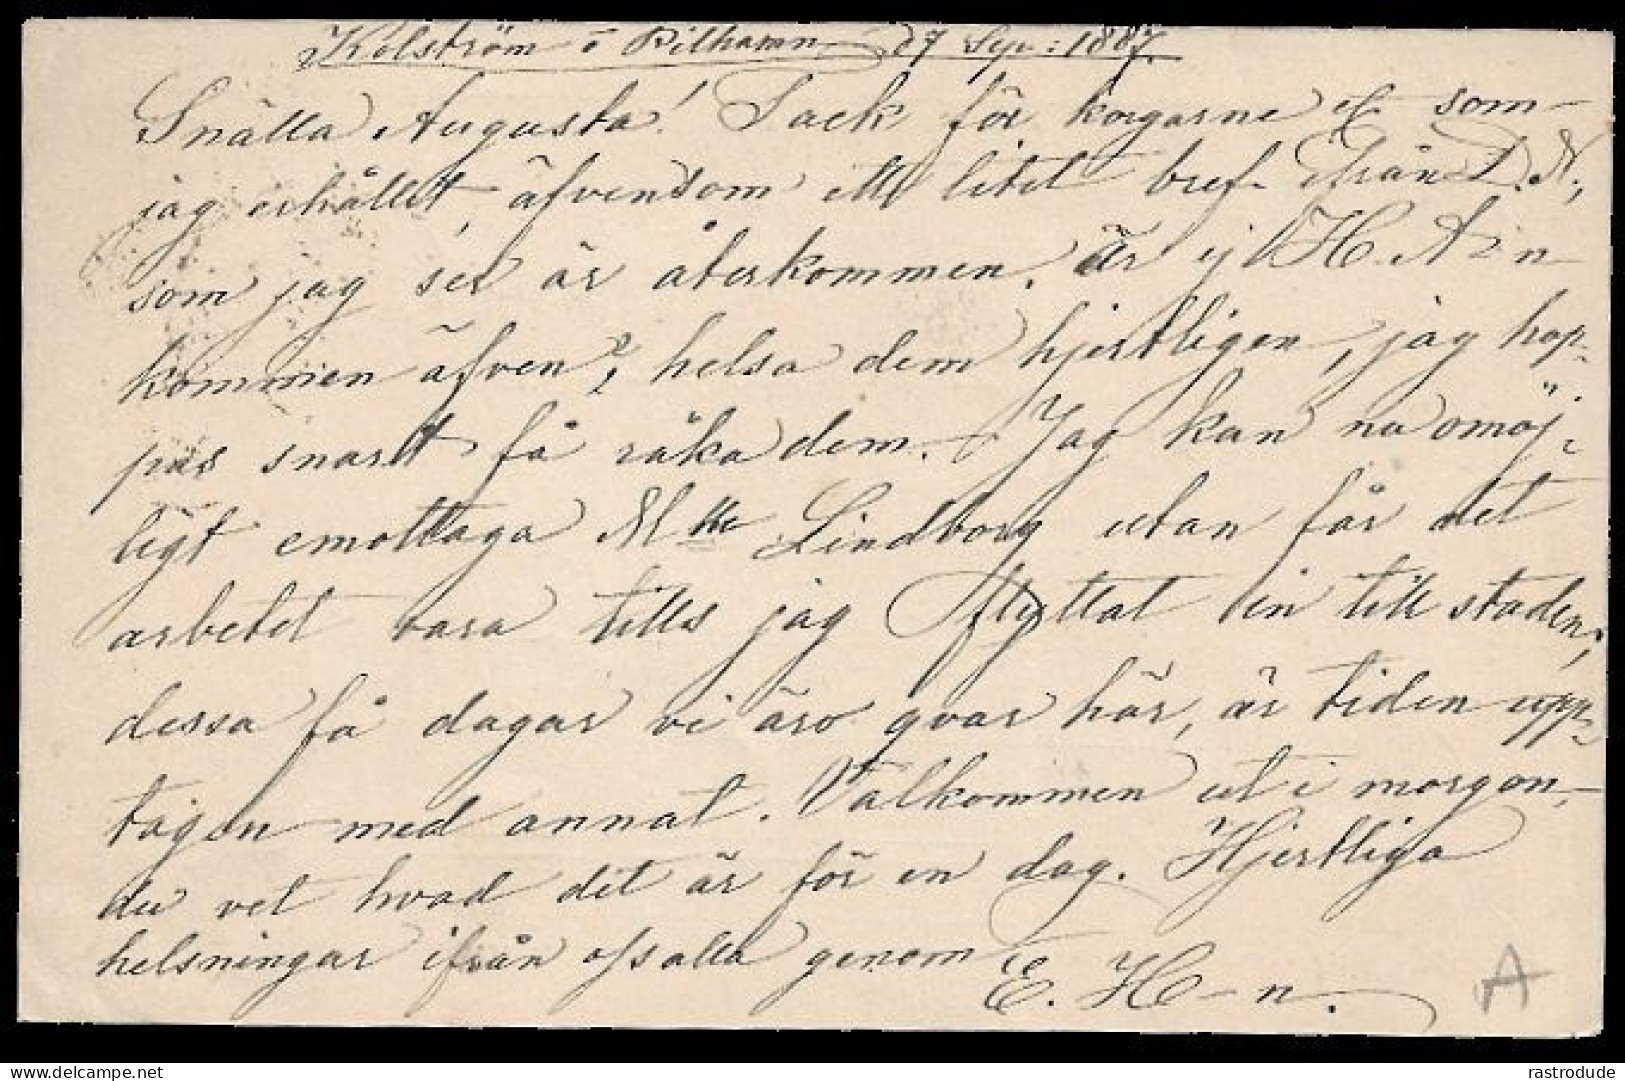 Kolström o Pilhamn 27 Sep: 1887.
Snälla Augusta! Tack för korgarne &c som
jag erhållit, äfvensom ett litet bref ifrån D. N.,
som jag ser är återkommen. Är ej H. A=n
kommen äfven?, helsa dem hjertligen, jag hop-
pas snart få råka dem. Jag kan nu omöj-
ligt emottaga Mlle Lindborg utan får det
arbetet vara tills jag flyttat in till staden,
dessa få dagar vi äro qvar här, är tiden upp-
tagen med annat. Välkommen ut i morgon,
du vet hvad det är för en dag. Hjertliga
helsningar ifrån ossalla genom
E. H-n.
A
rastrodude